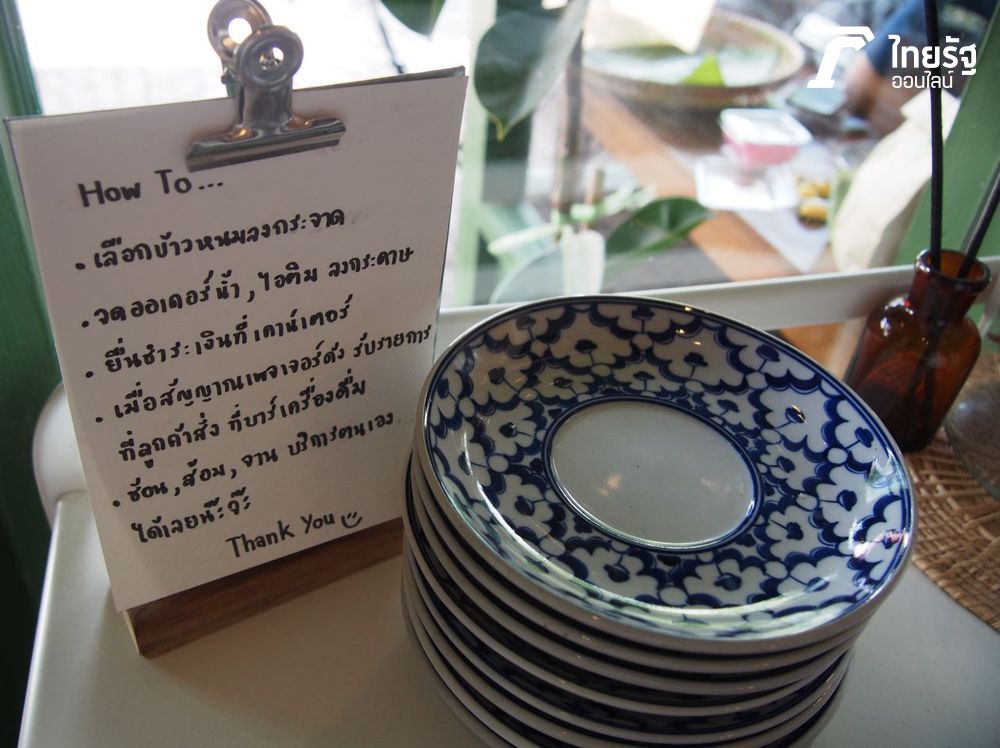 How To...
• เลือกข้าวหนมลงกระจาด
• จดออเดอร์น้ำ, ไอติม ลงกระดาษ
• ยื่นชำระเงินที่ เคาน์เตอร์
• เมื่อสัญญาณเพจเจอร์ดัง รับรายการ
ที่ลูกค้าสั่ง ที่บาร์เครื่องดื่ม
• ช้อน, ส้อม, จาน บริการตนเอง
ได้เลยน๊ะจ๊ะ
Thank You
ไทยรัฐ
ออนไลน์